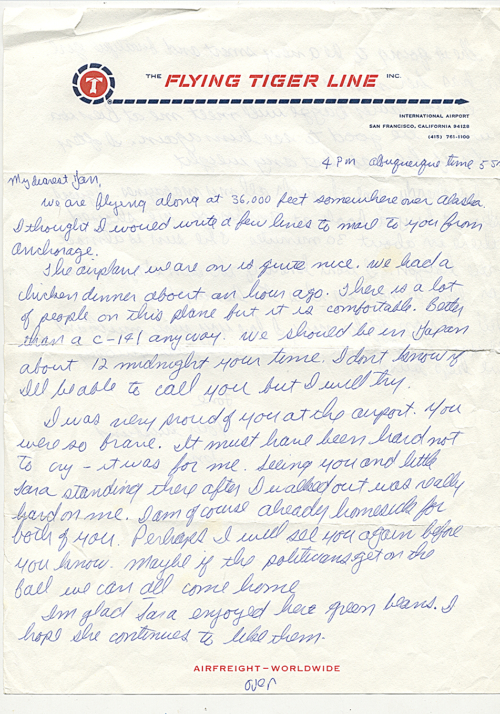 THE FLYING TIGER LINE INC.
INTERNATIONAL AIRPORT
SAN FRANCISCO, CALIFORNIA 94128
(415) 761-1100
4 PM albuquerque time 5
My dearest Jan,
we are flying along at 36,000 feet somewhere over alaska.
I thought I would write a few lines to mail to you from
anchorage.
The airplane we are on is quite nice. we had a
chicken dinner about an hour ago. There is a lot
of people on this plane but it is comfortable. Better
than a C-141 anyway. we should be in Japan
about 12 midnight your time. I dont know if
Ill be able to call you but I will try.
I was very proud of you at the airport. you
were so brave. It must have been hard not
to cry - it was for me. Seeing you and little
Tara standing there after I walked out was really
hard on me. I am of course already homesick for
both of you. Perhaps I will see you again before
you know. Maybe if the politicans get on the
ball we can all come home
Im glad Tara enjoyed her green beans. I
hope she continues to like them.
AIRFREIGHT-WORLDWIDE
over